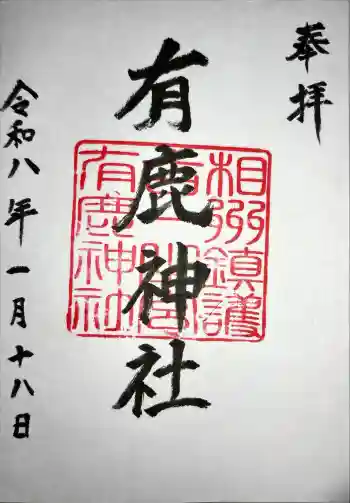 奉拝
有鹿神社
令和八年一月十八日
相州鎮護
有鹿神社